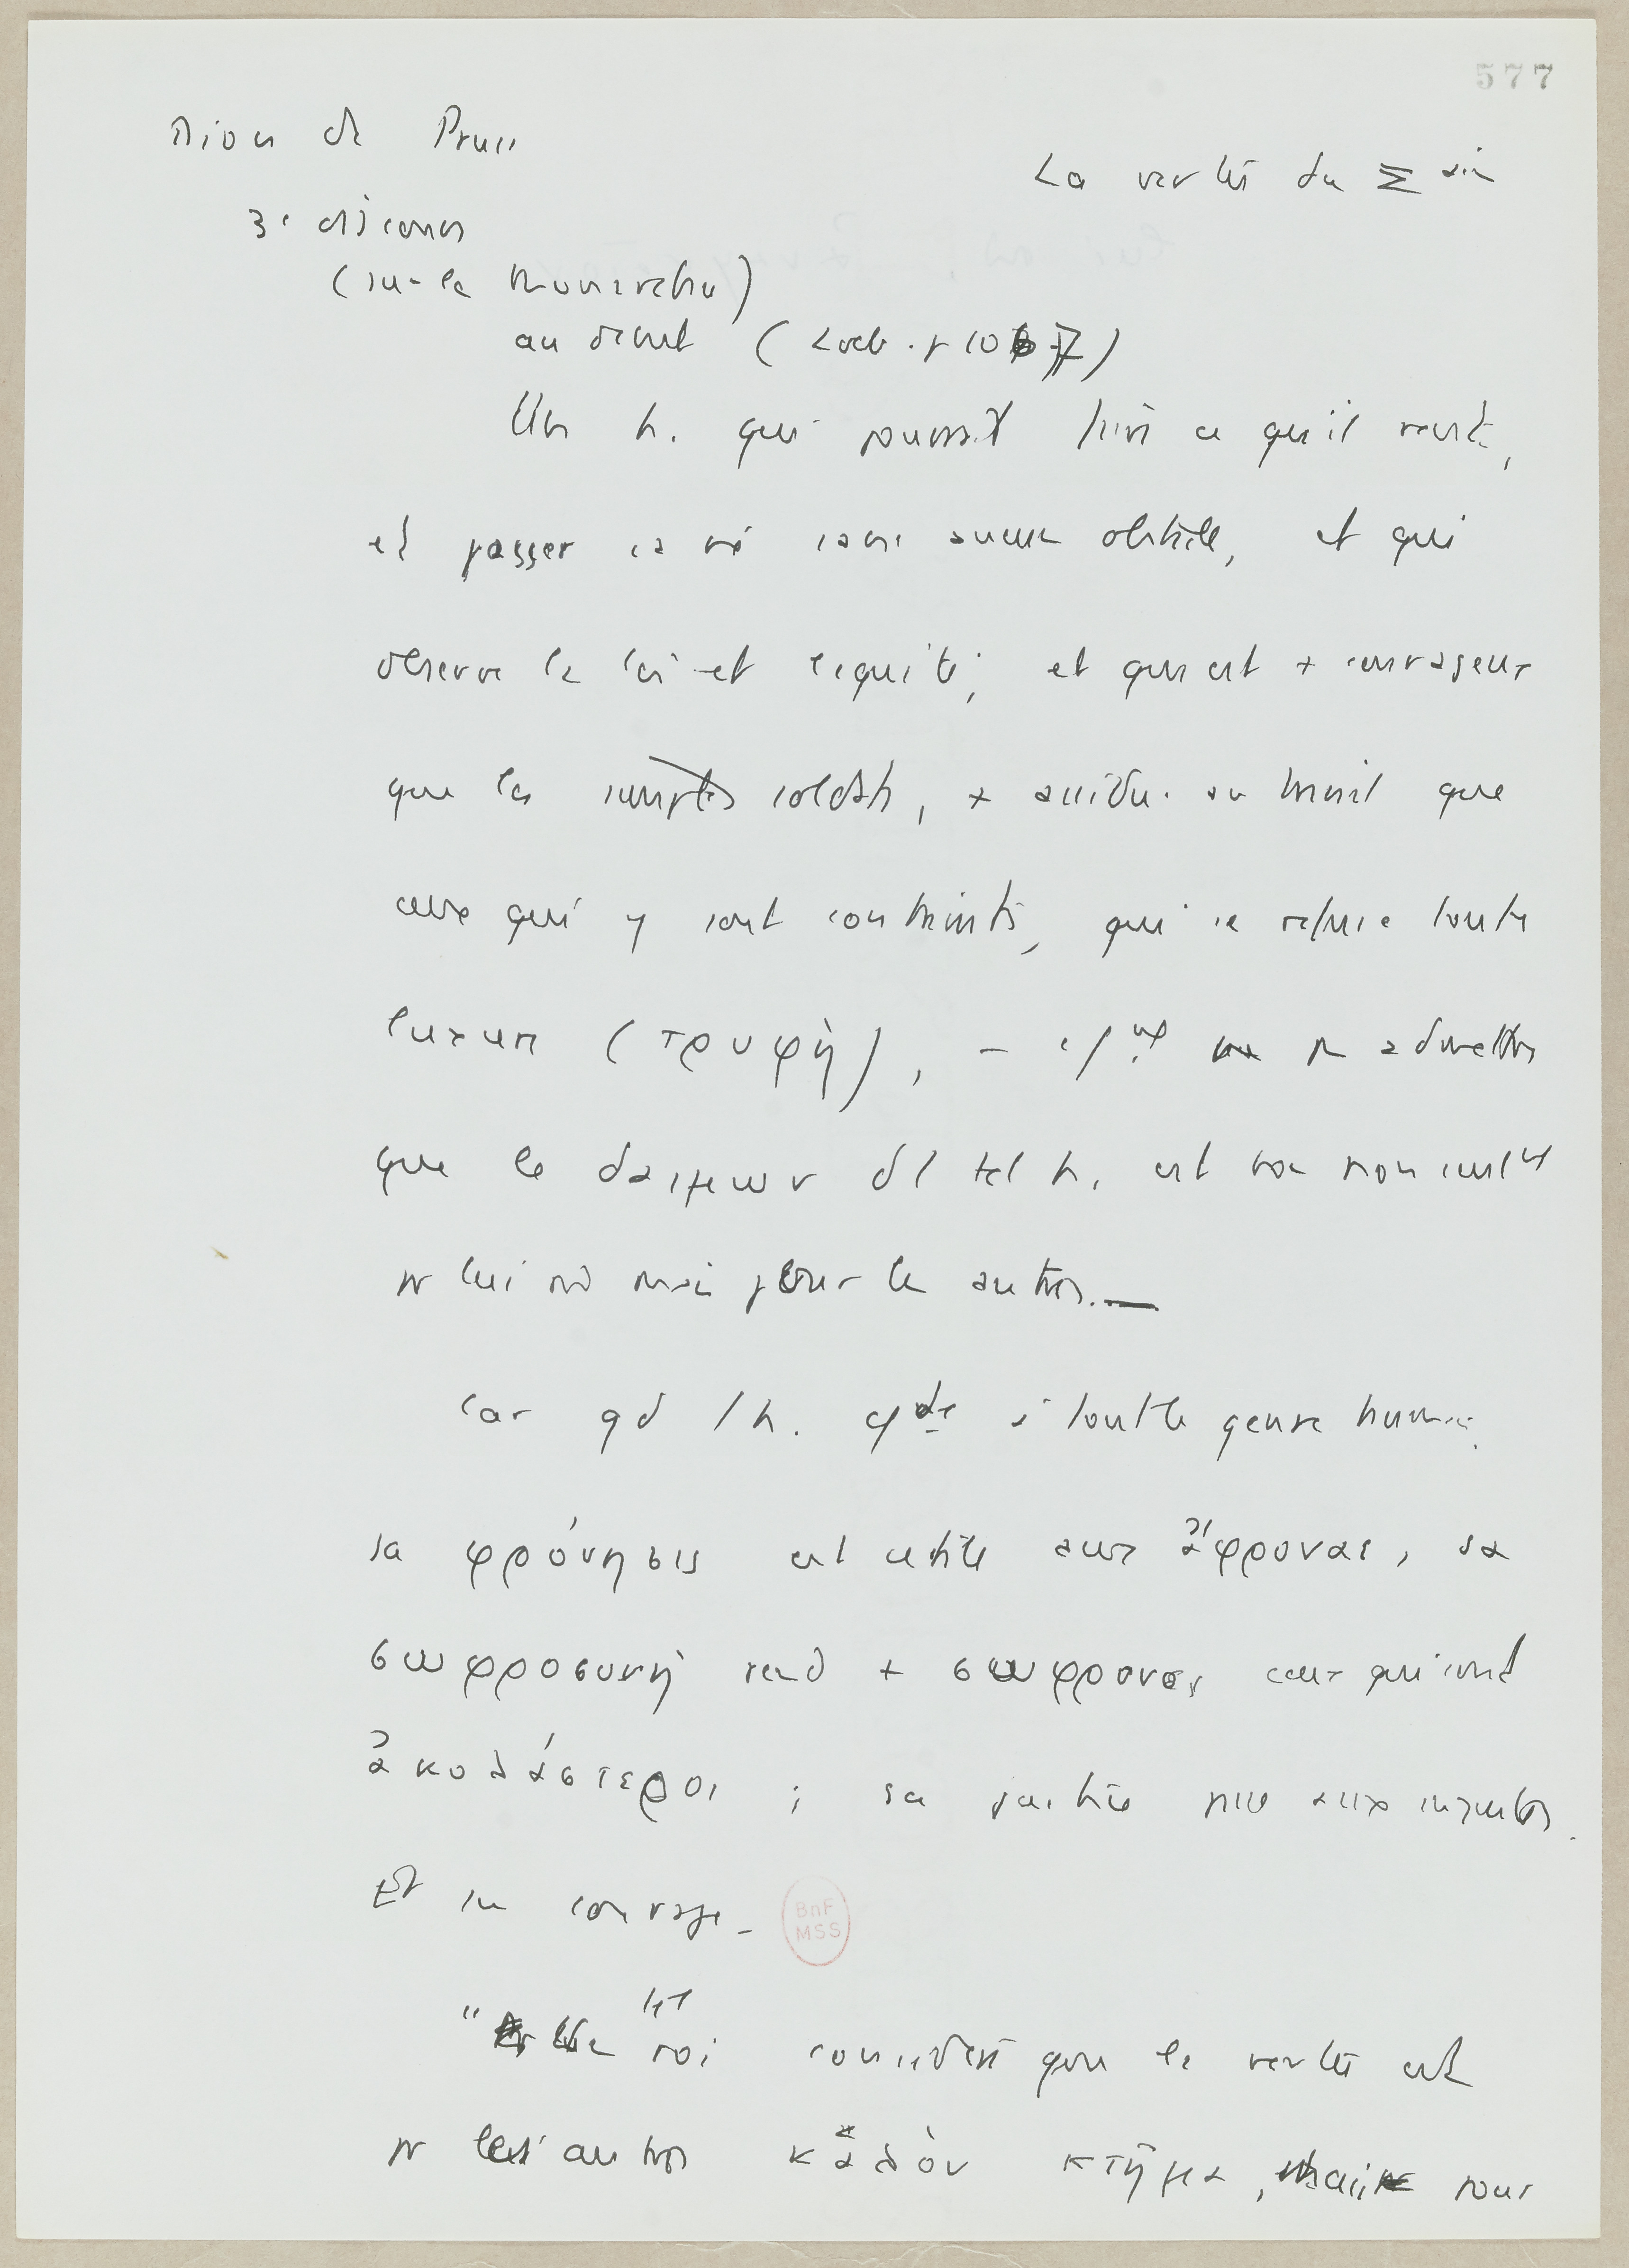 577
Dion de Pruse
La vertu du Σain
3e discours
(sur la monarchie)
au début (Loeb. p 107)
Un h. qui pourrait faire ce qu'il veut,
et passer sa vie sans aucun obstacle, et qui
observe la loi et l'équité, et qui est + courageux
que les simples soldats, + assidu au travail que
ceux qui y sont contraints, qui se refuse toute
luxure (τρυφὴ), –
que le δαιμων d'1 tel h. est bon non seult
pr lui mais pour les autres. —
Car qd 1 h. cde à tout le genre humain,
sa φρόνησις est utile aux ἄφρονας, sa
σωφροσυνή rend + σωφρονες ceux qui sont
ἀκολάστεροι ; sa justice aux injustes.
Et son courage –
" roi considère que la vertu est
pr les autres καλὸν κτῆμα, pour
BnF
MSS